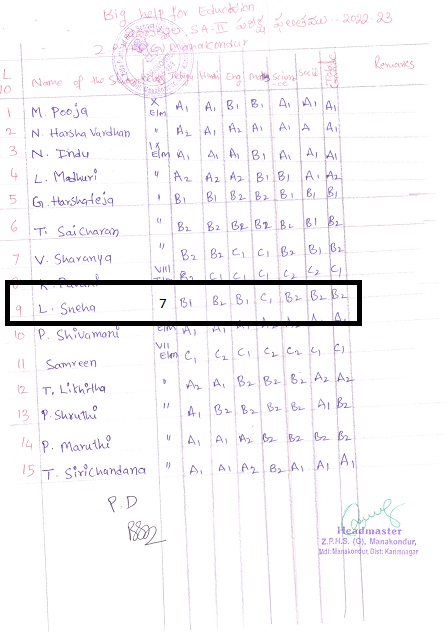 Big help for Education
SA-II పరీక్ష ఫలితములు - 2022-23
Z.P.H.S (G) Manakondur
SL NO Name of the Student Telugu Hindi Eng Maths Science Social Grade Remarks
1 M. Pooja X E/m A1 A1 B1 B1 A1 A1 A1
2 N. Harsha Vardhan " A2 A1 A2 A1 A1 A A1
3 N. Indu IX E/m A1 A1 A1 B1 A1 A1 A1
4 L. Madhuri " A2 A2 A2 B1 B1 A1 A2
5 G. Harshateja " B1 B1 B2 B2 B1 B1 B1
6 T. Saicharan " B2 B2 B2 B2 B2 B1 B2
7 V. Sharanya " B2 B2 C1 C1 B2 B1 B2
VIII C1 C1 C2 C2 C1
9 L. Sneha 7 B1 B2 B1 C1 B2 B2 B2
10 P. Shivamani E/m
11 Samreen VII E/m C1 C2 C1 C2 C2 C1 C1
12 T. Likhitha " A2 A1 B2 B2 B2 A2 A2
13 P. Shruthi " A1 B2 B2 B2 B2 A1 B2
14 P. Maruthi " A1 A1 A2 B2 B2 B2 B2
15 T. Sirichandana " A1 A1 A2 B2 A1 A1 A1
P.D
Headmaster
Z.P.H.S. (G), Manakondur,
Mdl: Manakondur, Dist: Karimnagar